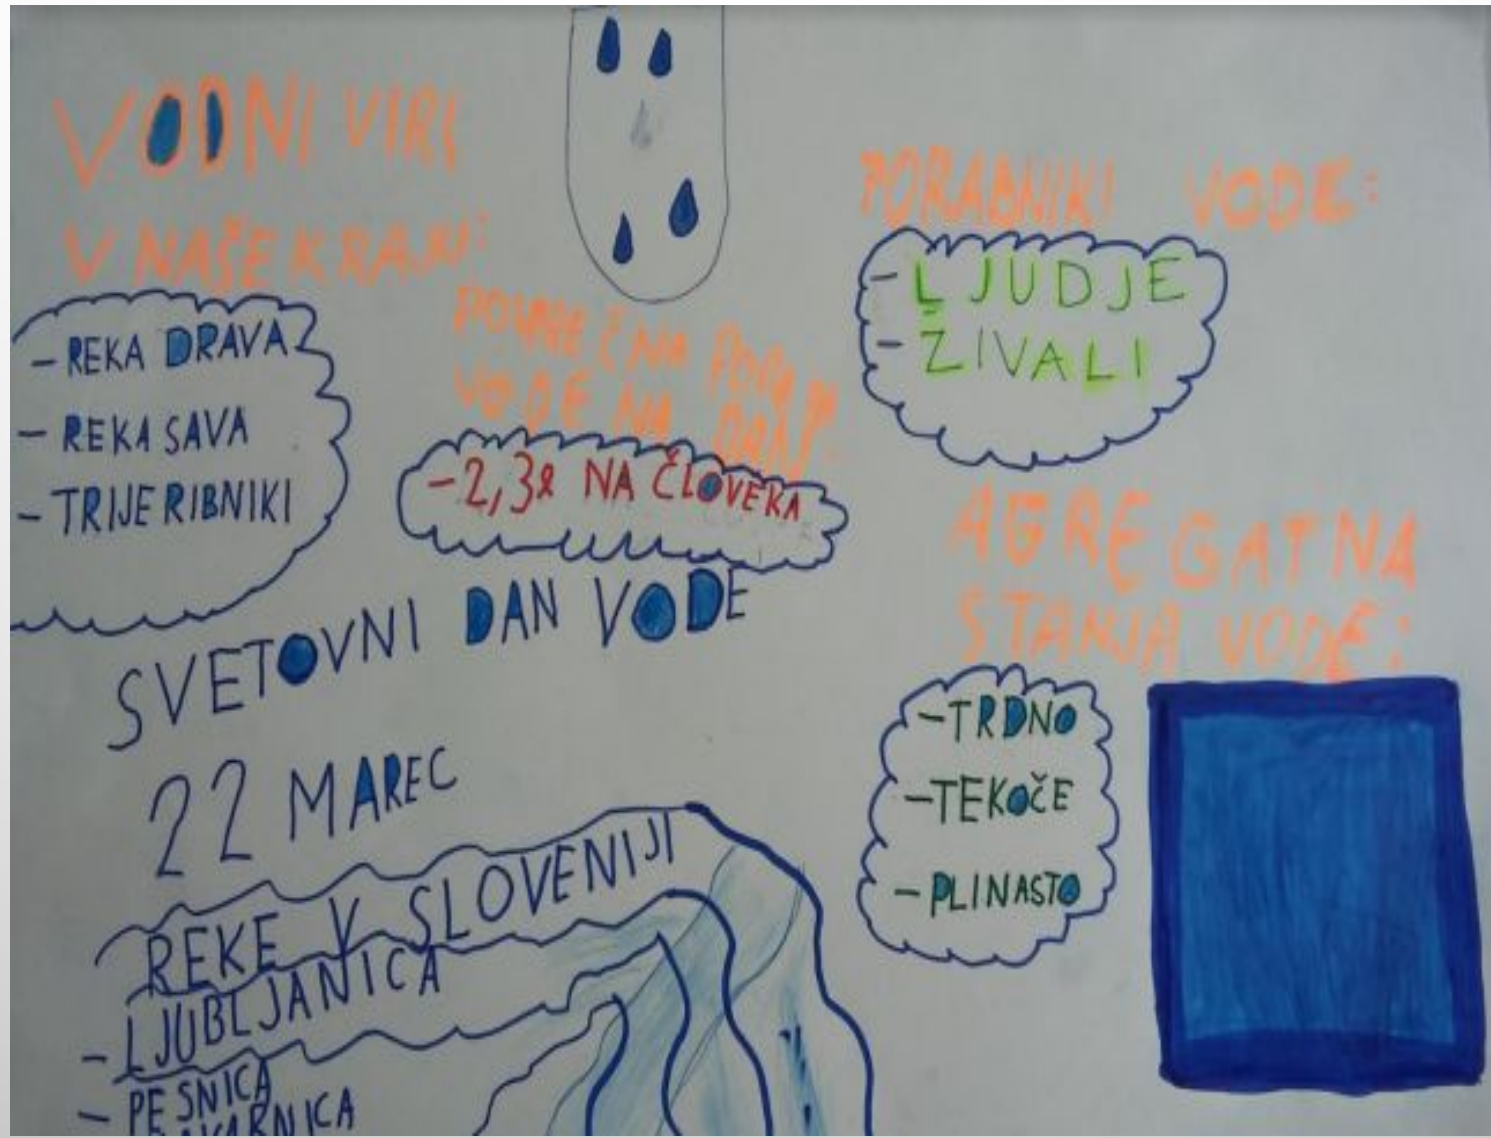 VODNI VIRI
V NAŠEKRAJU:
- REKA DRAVA
- REKA SAVA
- TRIJE RIBNIKI
POVPREČNA PORABA
VODE NA DAN:
- 2,3l NA ČLOVEKA
PORABNIKI VODE:
- LJUDJE
- ŽIVALI
AGREGATNA
STANJA VODE:
- TRDNO
- TEKOČE
- PLINASTO
SVETOVNI DAN VODE
22 MAREC
REKE V SLOVENIJI
- LJUBLJANICA
- PESNICA